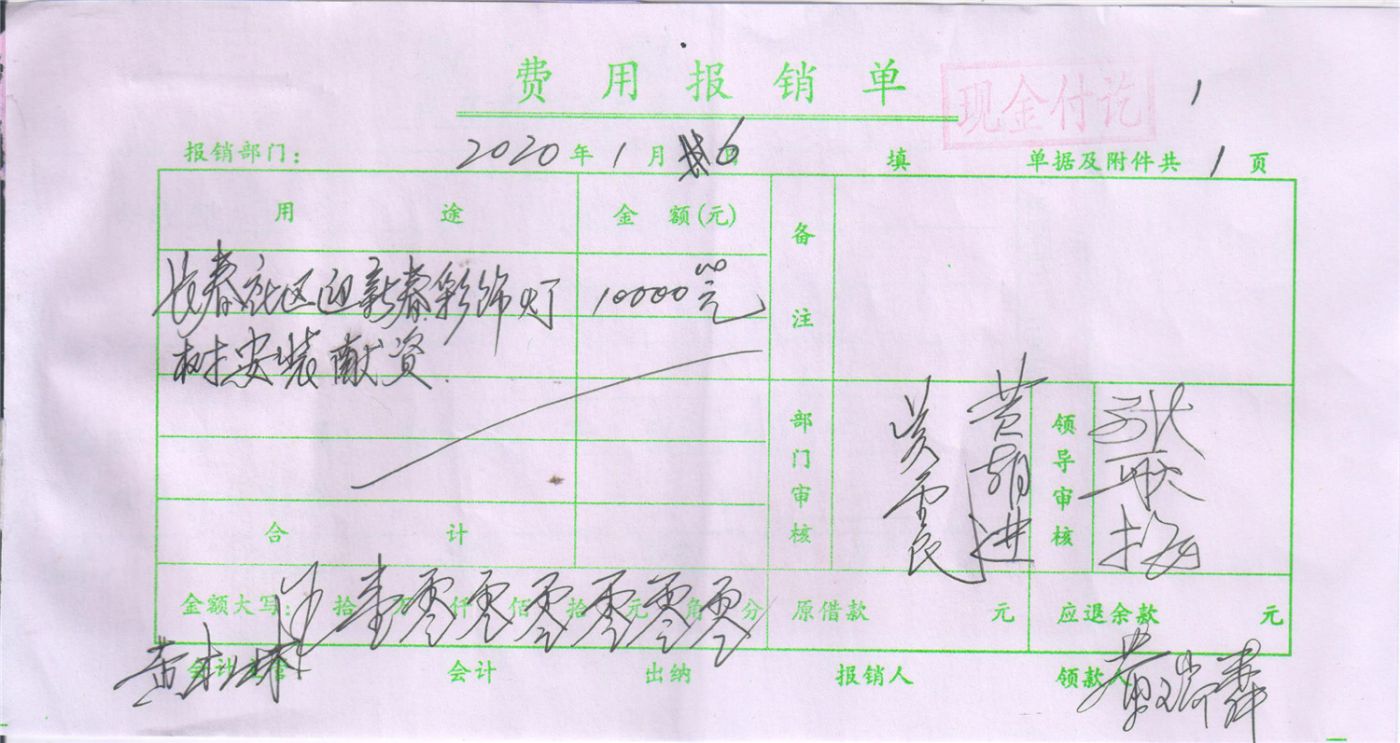 费用报销单
现金付讫
1
报销部门： 2020年1月6日 填 单据及附件共1页
用途 金额(元) 备注
长春社区迎新春彩饰灯 10000元
树安装献资
部门审核 黄朝进 领导审核
合计
金额大写： 拾壹万零仟零佰零拾零元零角零分 原借款 元 应退余款 元
会计主管 会计 出纳 报销人 领款人